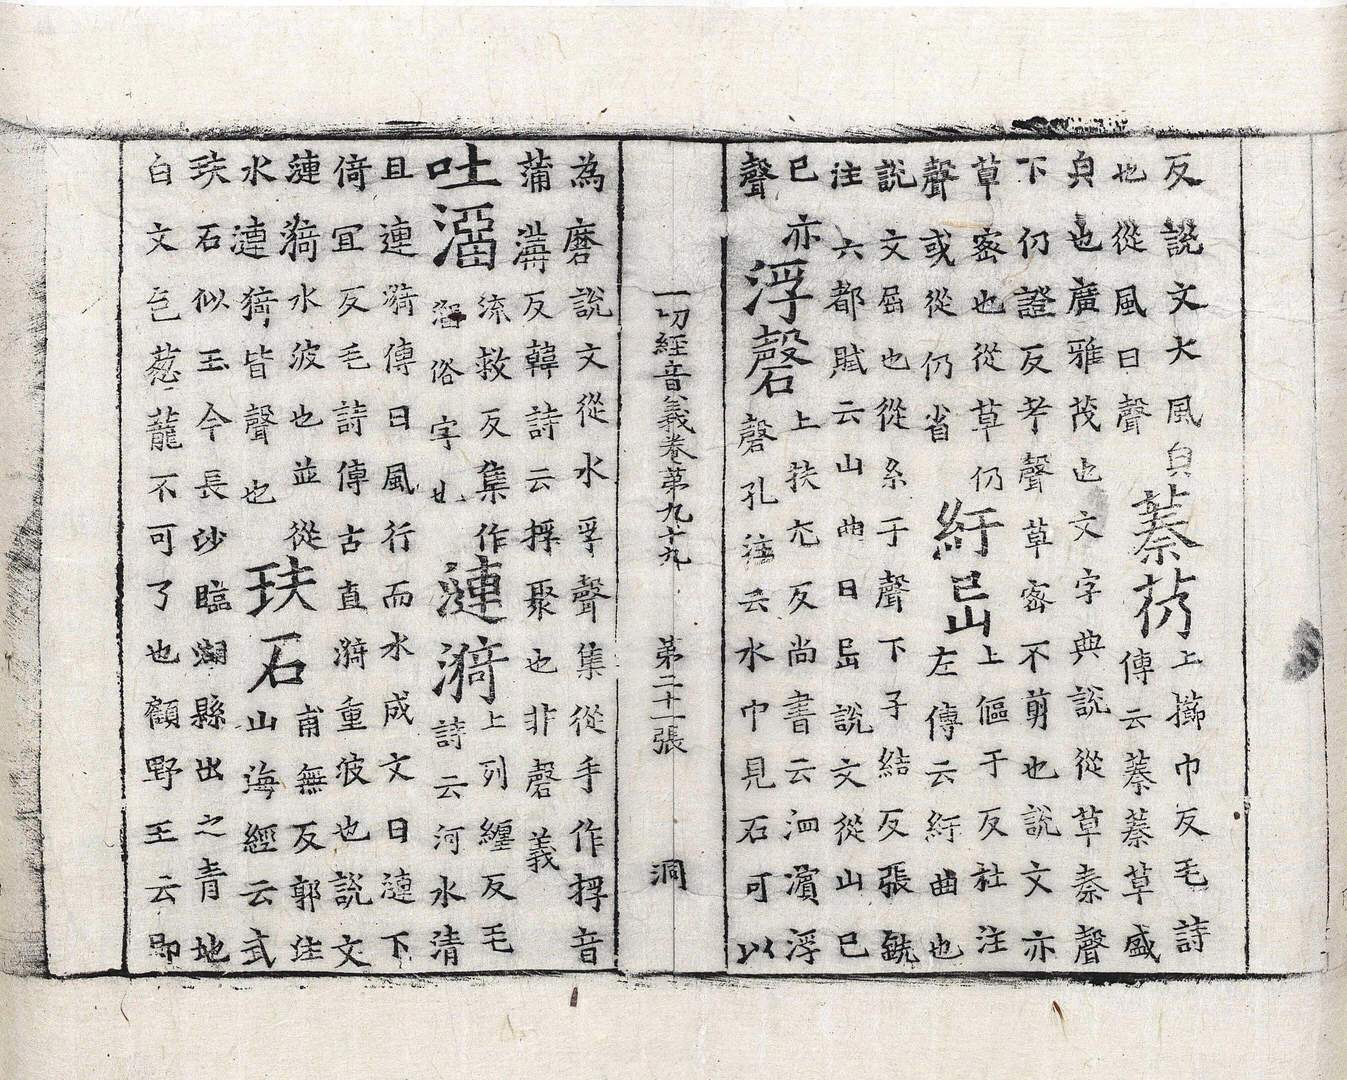 反說文大風皃
也從風日聲
蓁芿
上櫛巾反毛詩
傳云蓁蓁草盛
皃也廣雅茂也文字典說從草秦聲
下仍證反考聲草密不剪也說文亦
草密也從草仍
聲或從仍省
紆岊
上傴于反社注
左傳云紆曲也
說文屈也從糸于聲下子結反張銑
注六都賦云山曲曰岊說文從山巳
巳亦
聲
浮磬
上扶尤反尚書云泗濱浮
磬孔注云水中見石可以
一切經音義卷第九十九 第二十一張 洞
為磨說文從水孚聲集從手作捊音
蒲溝反韓詩云捊聚也非磬義
吐溜
流救反集作
溜俗字也
漣漪
上列纏反毛
詩云河水清
且漣漪傳曰風行而水成文曰漣下
倚冝反毛詩傳古直漪重波也說文
漣漪水波也並從
水漣猗皆聲也
玞石
甫無反郭注
山海經云武
玞石似玉今長沙臨湘縣出之青地
白文色葱蘢不可了也顧野王云即